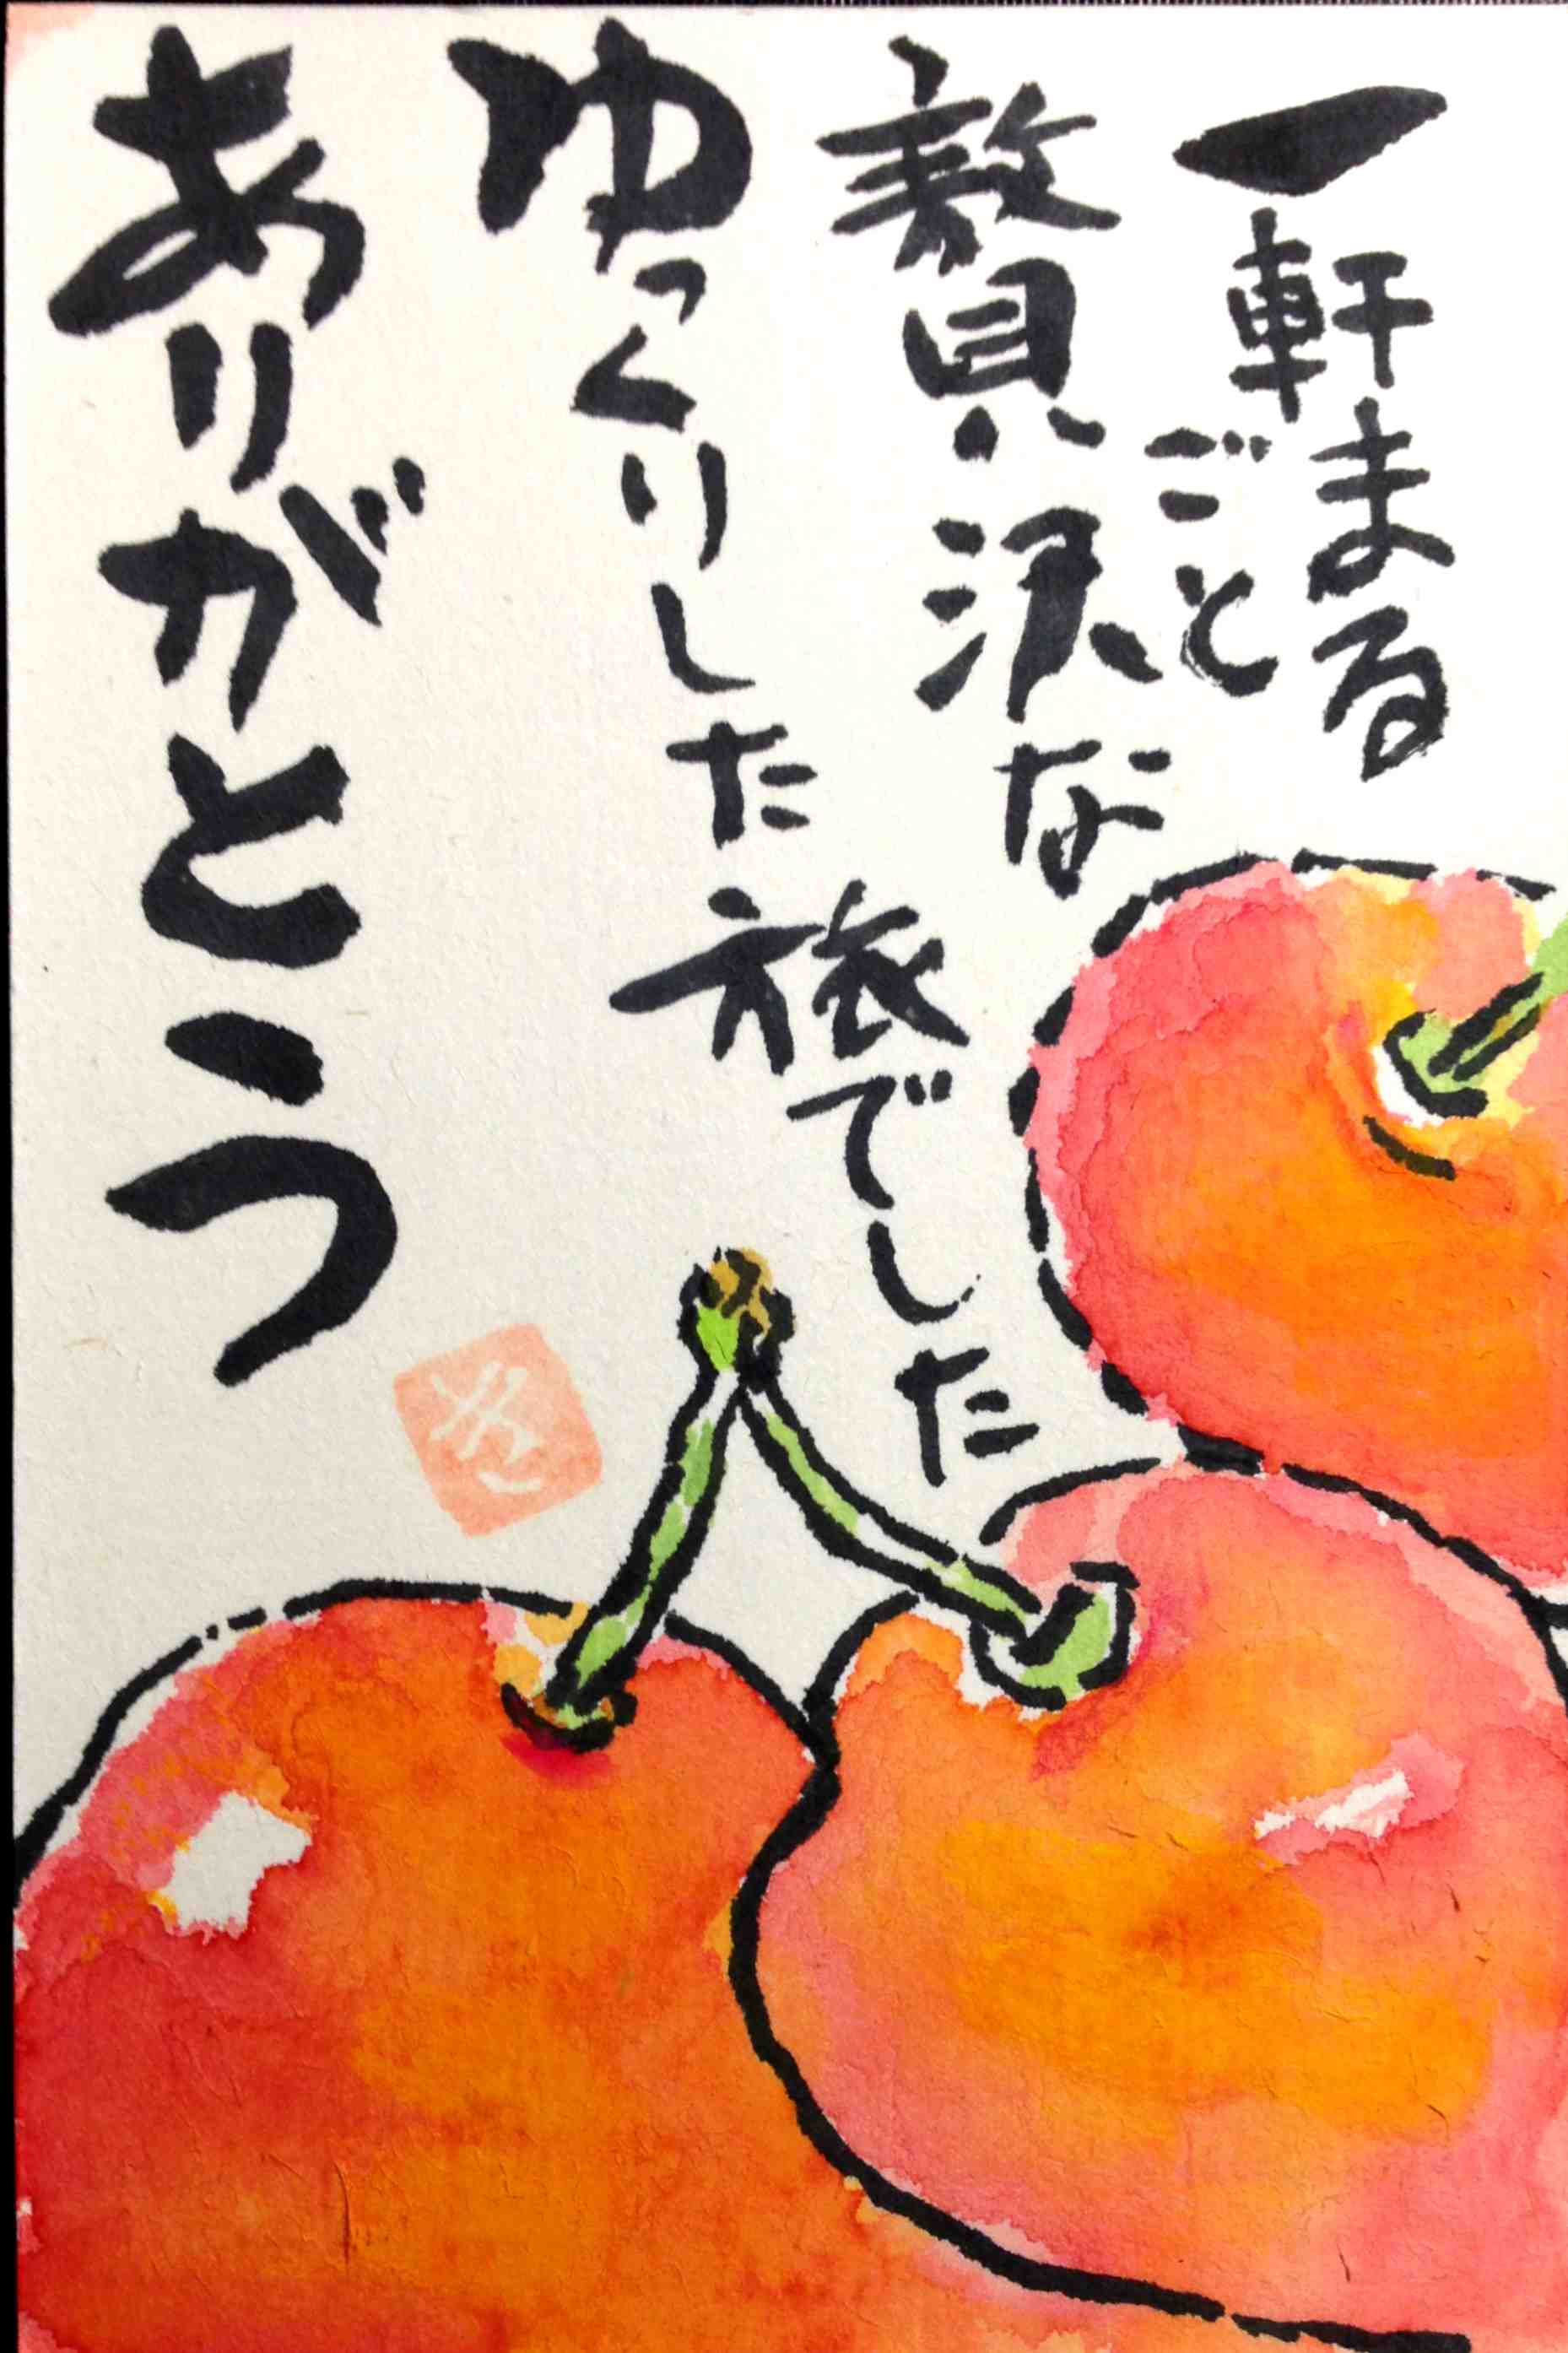 一軒まる
ごと
贅沢な
ゆっくりした旅でした
ありがとう
き